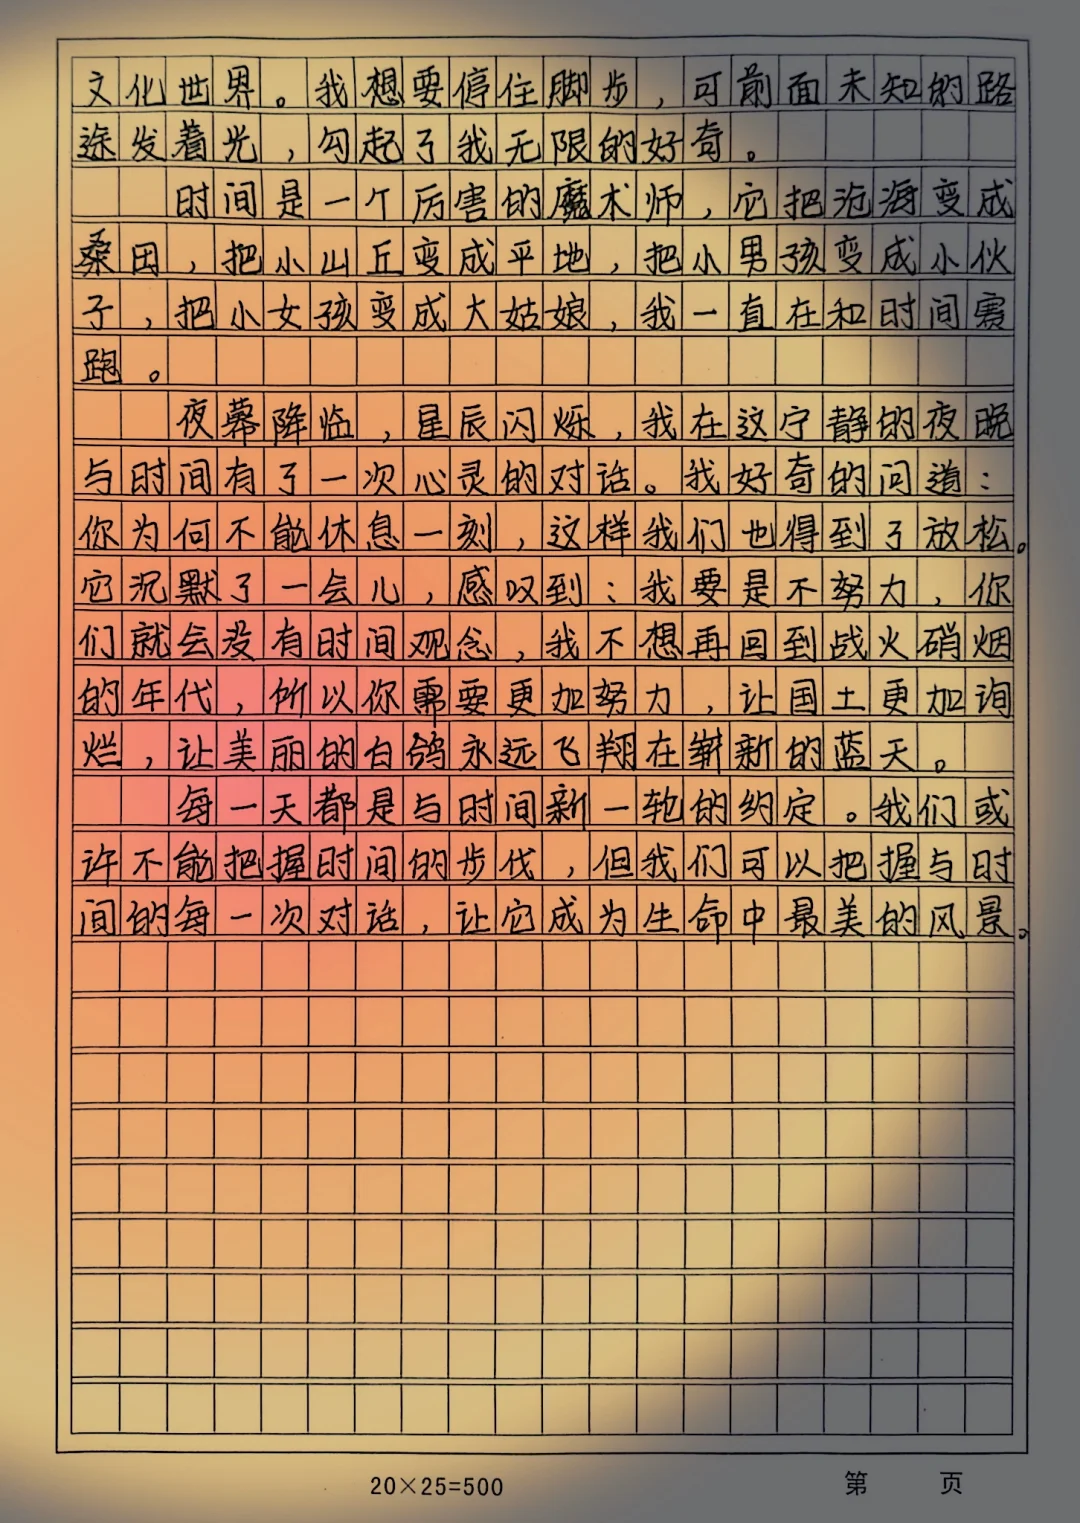 文化世界。我想要停住脚步，可前面未知的路
途发着光，勾起了我无限的好奇。
时间是一个厉害的魔术师，它把沧海变成
桑田，把小山丘变成平地，把小男孩变成小伙
子，把小女孩变成大姑娘，我一直在和时间赛
跑。
夜幕降临，星辰闪烁，我在这宁静的夜晚
与时间有了一次心灵的对话。我好奇的问道：
你为何不能休息一刻，这样我们也得到了放松。
它沉默了一会儿，感叹到：我要是不努力，你
们就会没有时间观念，我不想再回到战火硝烟
的年代，所以你需要更加努力，让国土更加询
烂，让美丽的白鸽永远飞翔在崭新的蓝天。
每一天都是与时间新一轮的约定。我们或
许不能把握时间的步伐，但我们可以把握与时
间的每一次对话，让它成为生命中最美的风景。
20×25=500
第 页